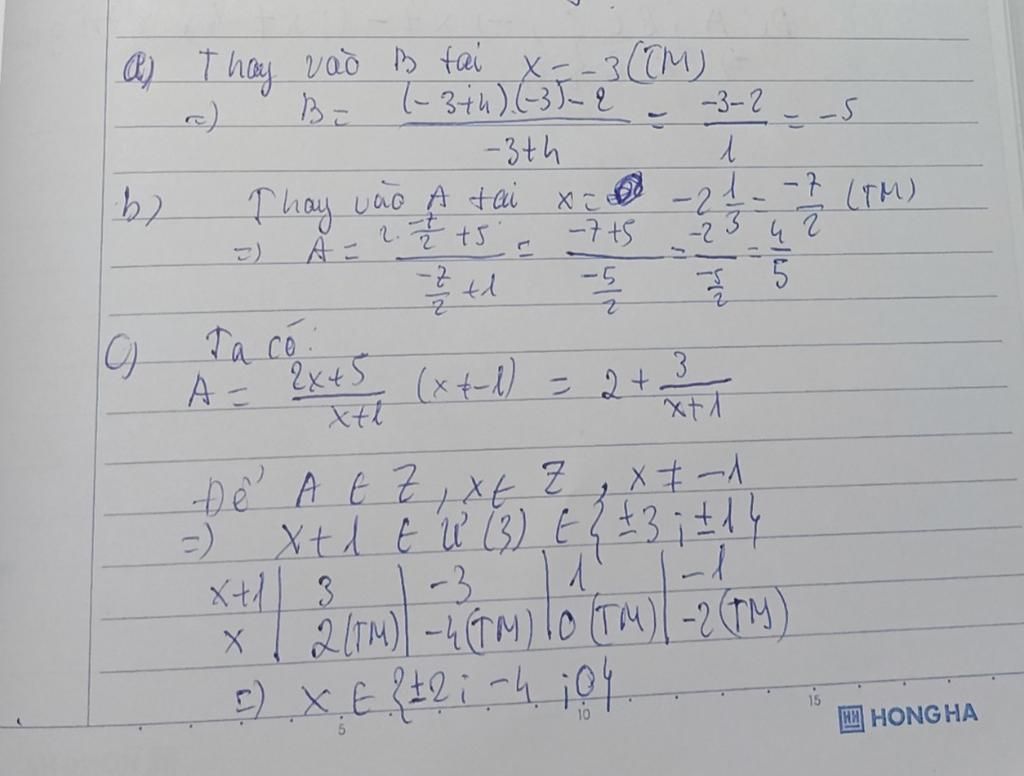 a) Thay vào B tại x = -3 (TM)
=) B = ((-3+4).(-3)-2)/(-3+4) = (-3-2)/1 = -5
b) Thay vào A tại x = -2 1/3 = -7/2 (TM)
=) A = (2.(-7/2)+5)/(-7/2+1) = (-7+5)/(-5/2) = -2/(-5/2) = 4/5
c) Ta có:
A = (2x+5)/(x+1) (x≠-1) = 2 + 3/(x+1)
Để A ∈ Z, x ∈ Z, x ≠ -1
=) x+1 ∈ Ư(3) ∈ {±3; ±1}
x+1 | 3 | -3 | 1 | -1
x | 2 (TM) | -4 (TM) | 0 (TM) | -2 (TM)
=) x ∈ {±2; -4; 0}
5 10 15
HH HONG HA